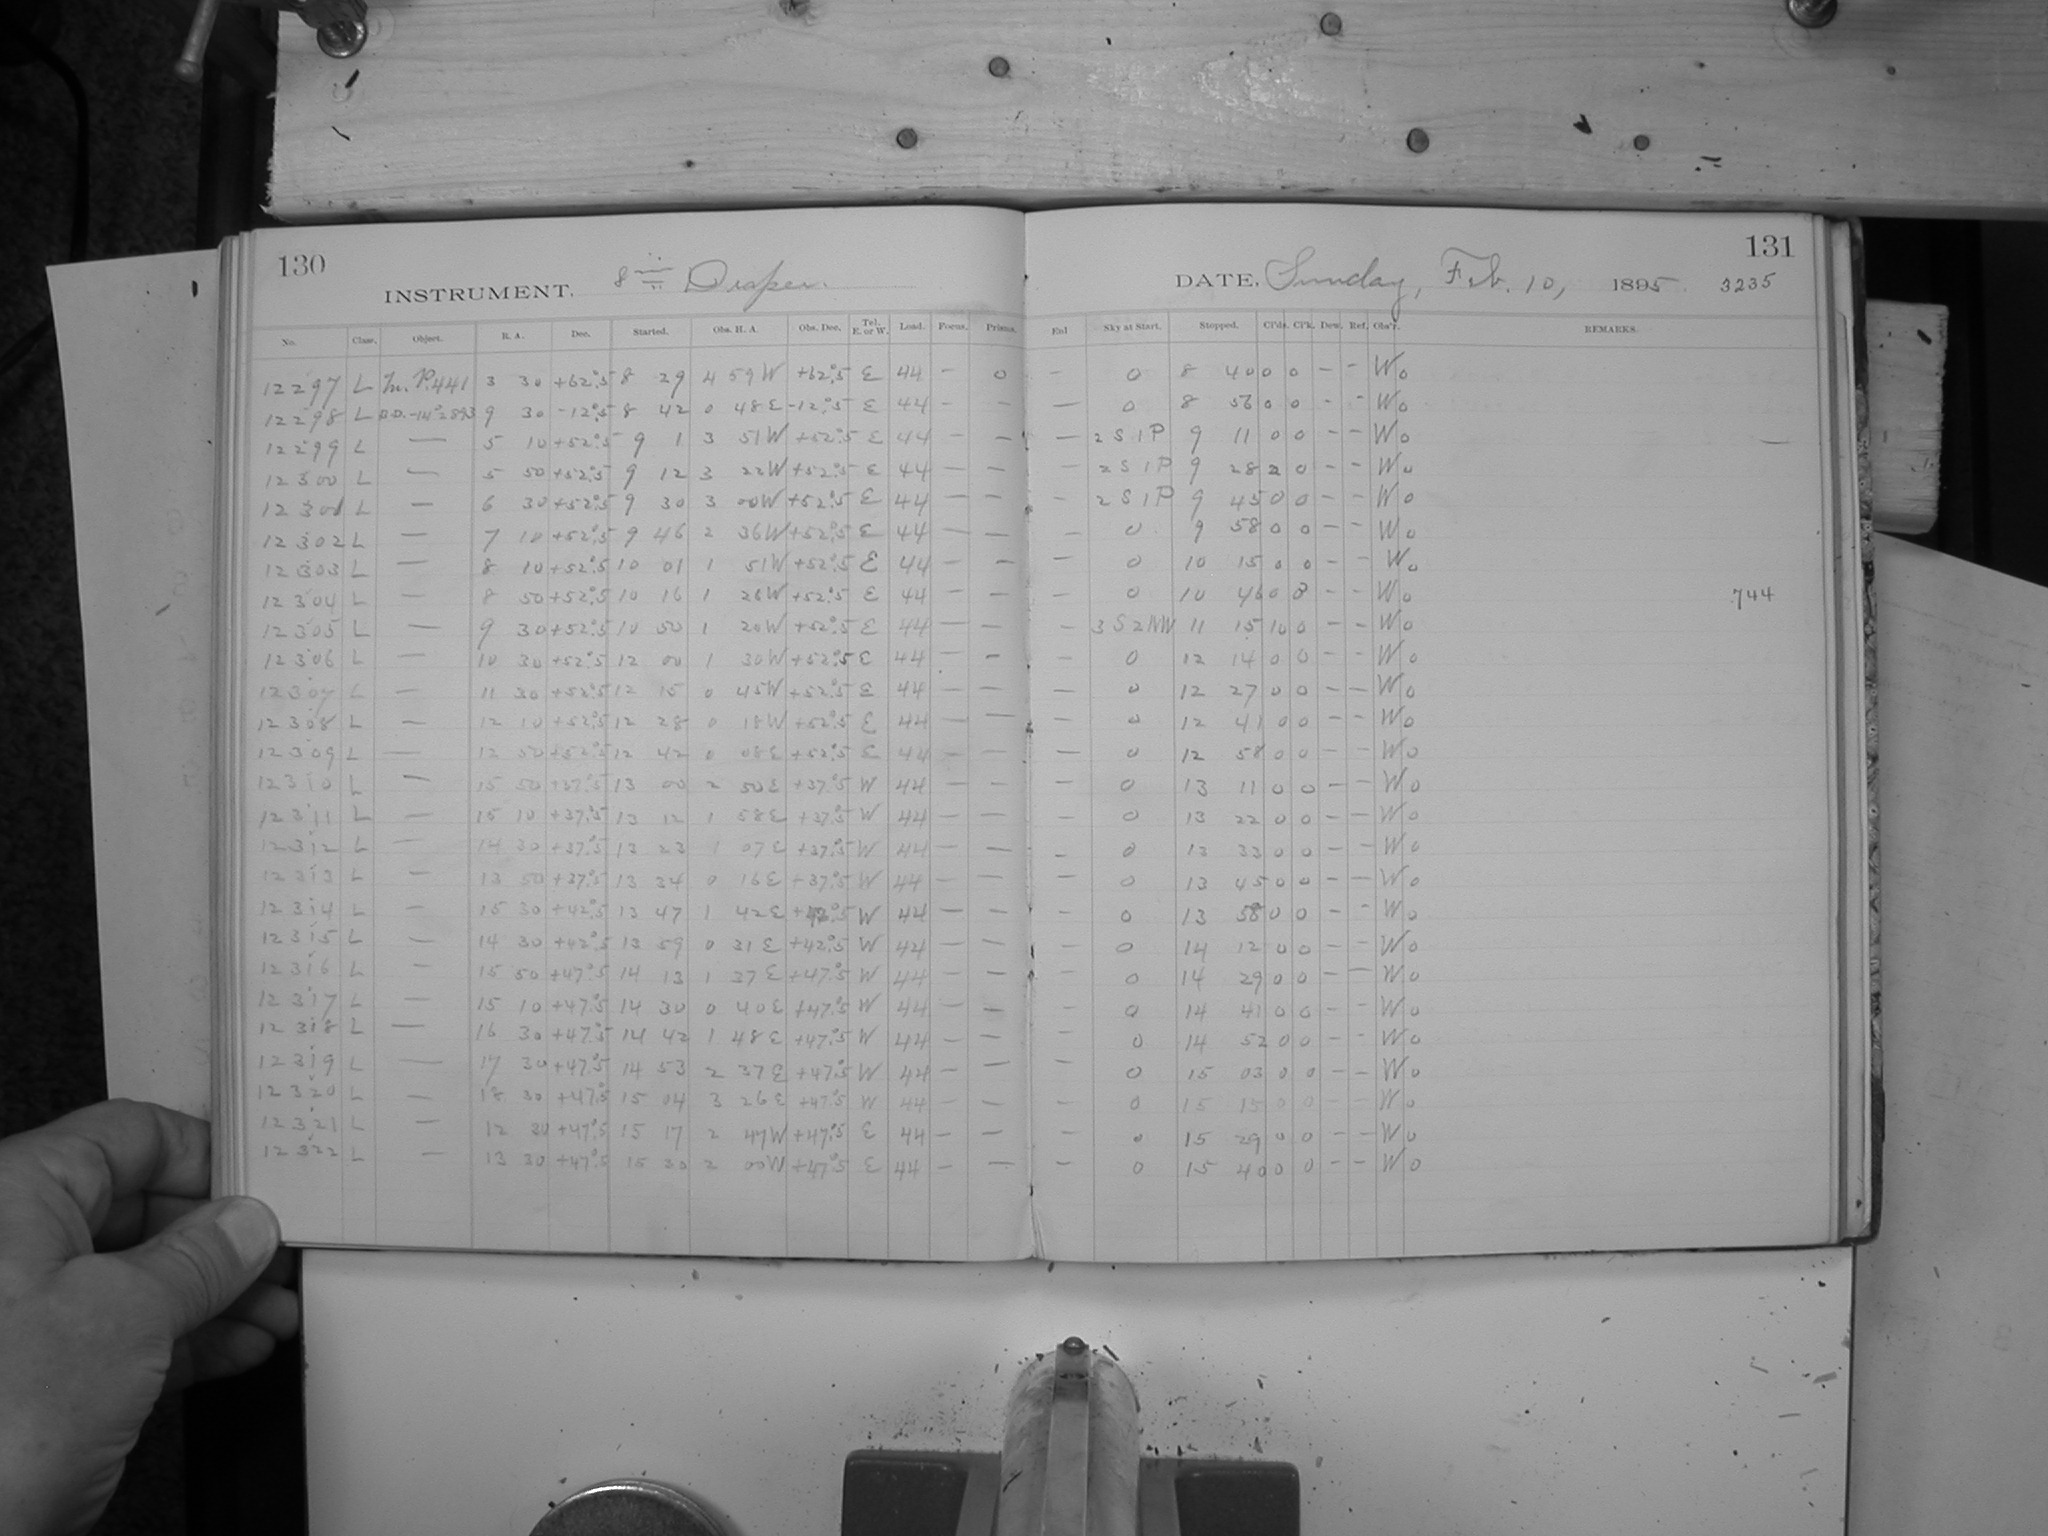 130
INSTRUMENT. 8 in Draper.
No. Class. Object. R. A. Dec. Started. Obs. H. A. Obs. Dec. Tel. E. or W. Load. Focus. Prisms.
12297 L 3 30 +62°.5 8 29 4 59W +62°.5 E 44 – 0
12298 L B.D.-14°2893 9 30 -12°.5 8 42 0 48E -12°.5 E 44 – –
12299 L — 5 10 +52°.5 9 1 3 51W +52°.5 E 44 – –
12300 L — 5 50 +52°.5 9 12 3 22W +52°.5 E 44 – –
12301 L — 6 30 +52°.5 9 30 3 00W +52°.5 E 44 – –
12302 L — 7 10 +52°.5 9 46 2 36W +52°.5 E 44 – –
12303 L — 8 10 +52°.5 10 01 1 51W +52°.5 E 44 – –
12304 L — 8 50 +52°.5 10 16 1 26W +52°.5 E 44 – –
12305 L — 9 30 +52°.5 10 50 1 20W +52°.5 E 44 – –
12306 L — 10 30 +52°.5 12 00 1 30W +52°.5 E 44 – –
12307 L — 11 30 +52°.5 12 15 0 45W +52°.5 E 44 – –
12308 L — 12 10 +52°.5 12 28 0 18W +52°.5 E 44 – –
12309 L — 12 50 +52°.5 12 42 0 08E +52°.5 E 44 – –
12310 L — 15 50 +37°.5 13 00 2 50E +37°.5 W 44 – –
12311 L — 15 10 +37°.5 13 12 1 58E +37°.5 W 44 – –
12312 L — 14 30 +37°.5 13 23 1 07E +37°.5 W 44 – –
12313 L — 13 50 +37°.5 13 34 0 16E +37°.5 W 44 – –
12314 L — 15 30 +42°.5 13 47 1 42E +42°.5 W 44 – –
12315 L — 14 30 +42°.5 13 59 0 31E +42°.5 W 44 – –
12316 L — 15 50 +47°.5 14 13 1 37E +47°.5 W 44 – –
12317 L — 15 10 +47°.5 14 30 0 40E +47°.5 W 44 – –
12318 L — 16 30 +47°.5 14 42 1 48E +47°.5 W 44 – –
12319 L — 17 30 +47°.5 14 53 2 37E +47°.5 W 44 – –
12320 L — 18 30 +47°.5 15 04 3 26E +47°.5 W 44 – –
12321 L — 12 30 +47°.5 15 17 2 47W +47°.5 E 44 – –
12322 L — 13 30 +47°.5 15 30 2 00W +47°.5 E 44 – –
131
DATE, Sunday, Feb. 10, 1895. 3235
Enl Sky at Start. Stopped. Cl'ds. Cl'k. Dew. Ref. Obs'r. REMARKS.
– 0 8 40 0 0 – – Wo
– 0 8 56 0 0 – – Wo
– 2S1P 9 11 0 0 – – Wo —
– 2S1P 9 28 2 0 – – Wo
– 2S1P 9 45 0 0 – – Wo
– 0 9 58 0 0 – – Wo
– 0 10 15 0 0 – – Wo
– 0 10 46 0 – – Wo 744
– 3S2NW 11 15 10 0 – – Wo
– 0 12 14 0 0 – – Wo
– 0 12 27 0 0 – – Wo
– 0 12 41 0 0 – – Wo
– 0 12 58 0 0 – – Wo
– 0 13 11 0 0 – – Wo
– 0 13 22 0 0 – – Wo
– 0 13 33 0 0 – – Wo
– 0 13 45 0 0 – – Wo
– 0 13 58 0 0 – – Wo
– 0 14 12 0 0 – – Wo
– 0 14 29 0 0 – – Wo
– 0 14 41 0 0 – – Wo
– 0 14 52 0 0 – – Wo
– 0 15 03 0 0 – – Wo
– 0 15 15 0 0 – – Wo
– 0 15 29 0 0 – – Wo
– 0 15 40 0 0 – – Wo